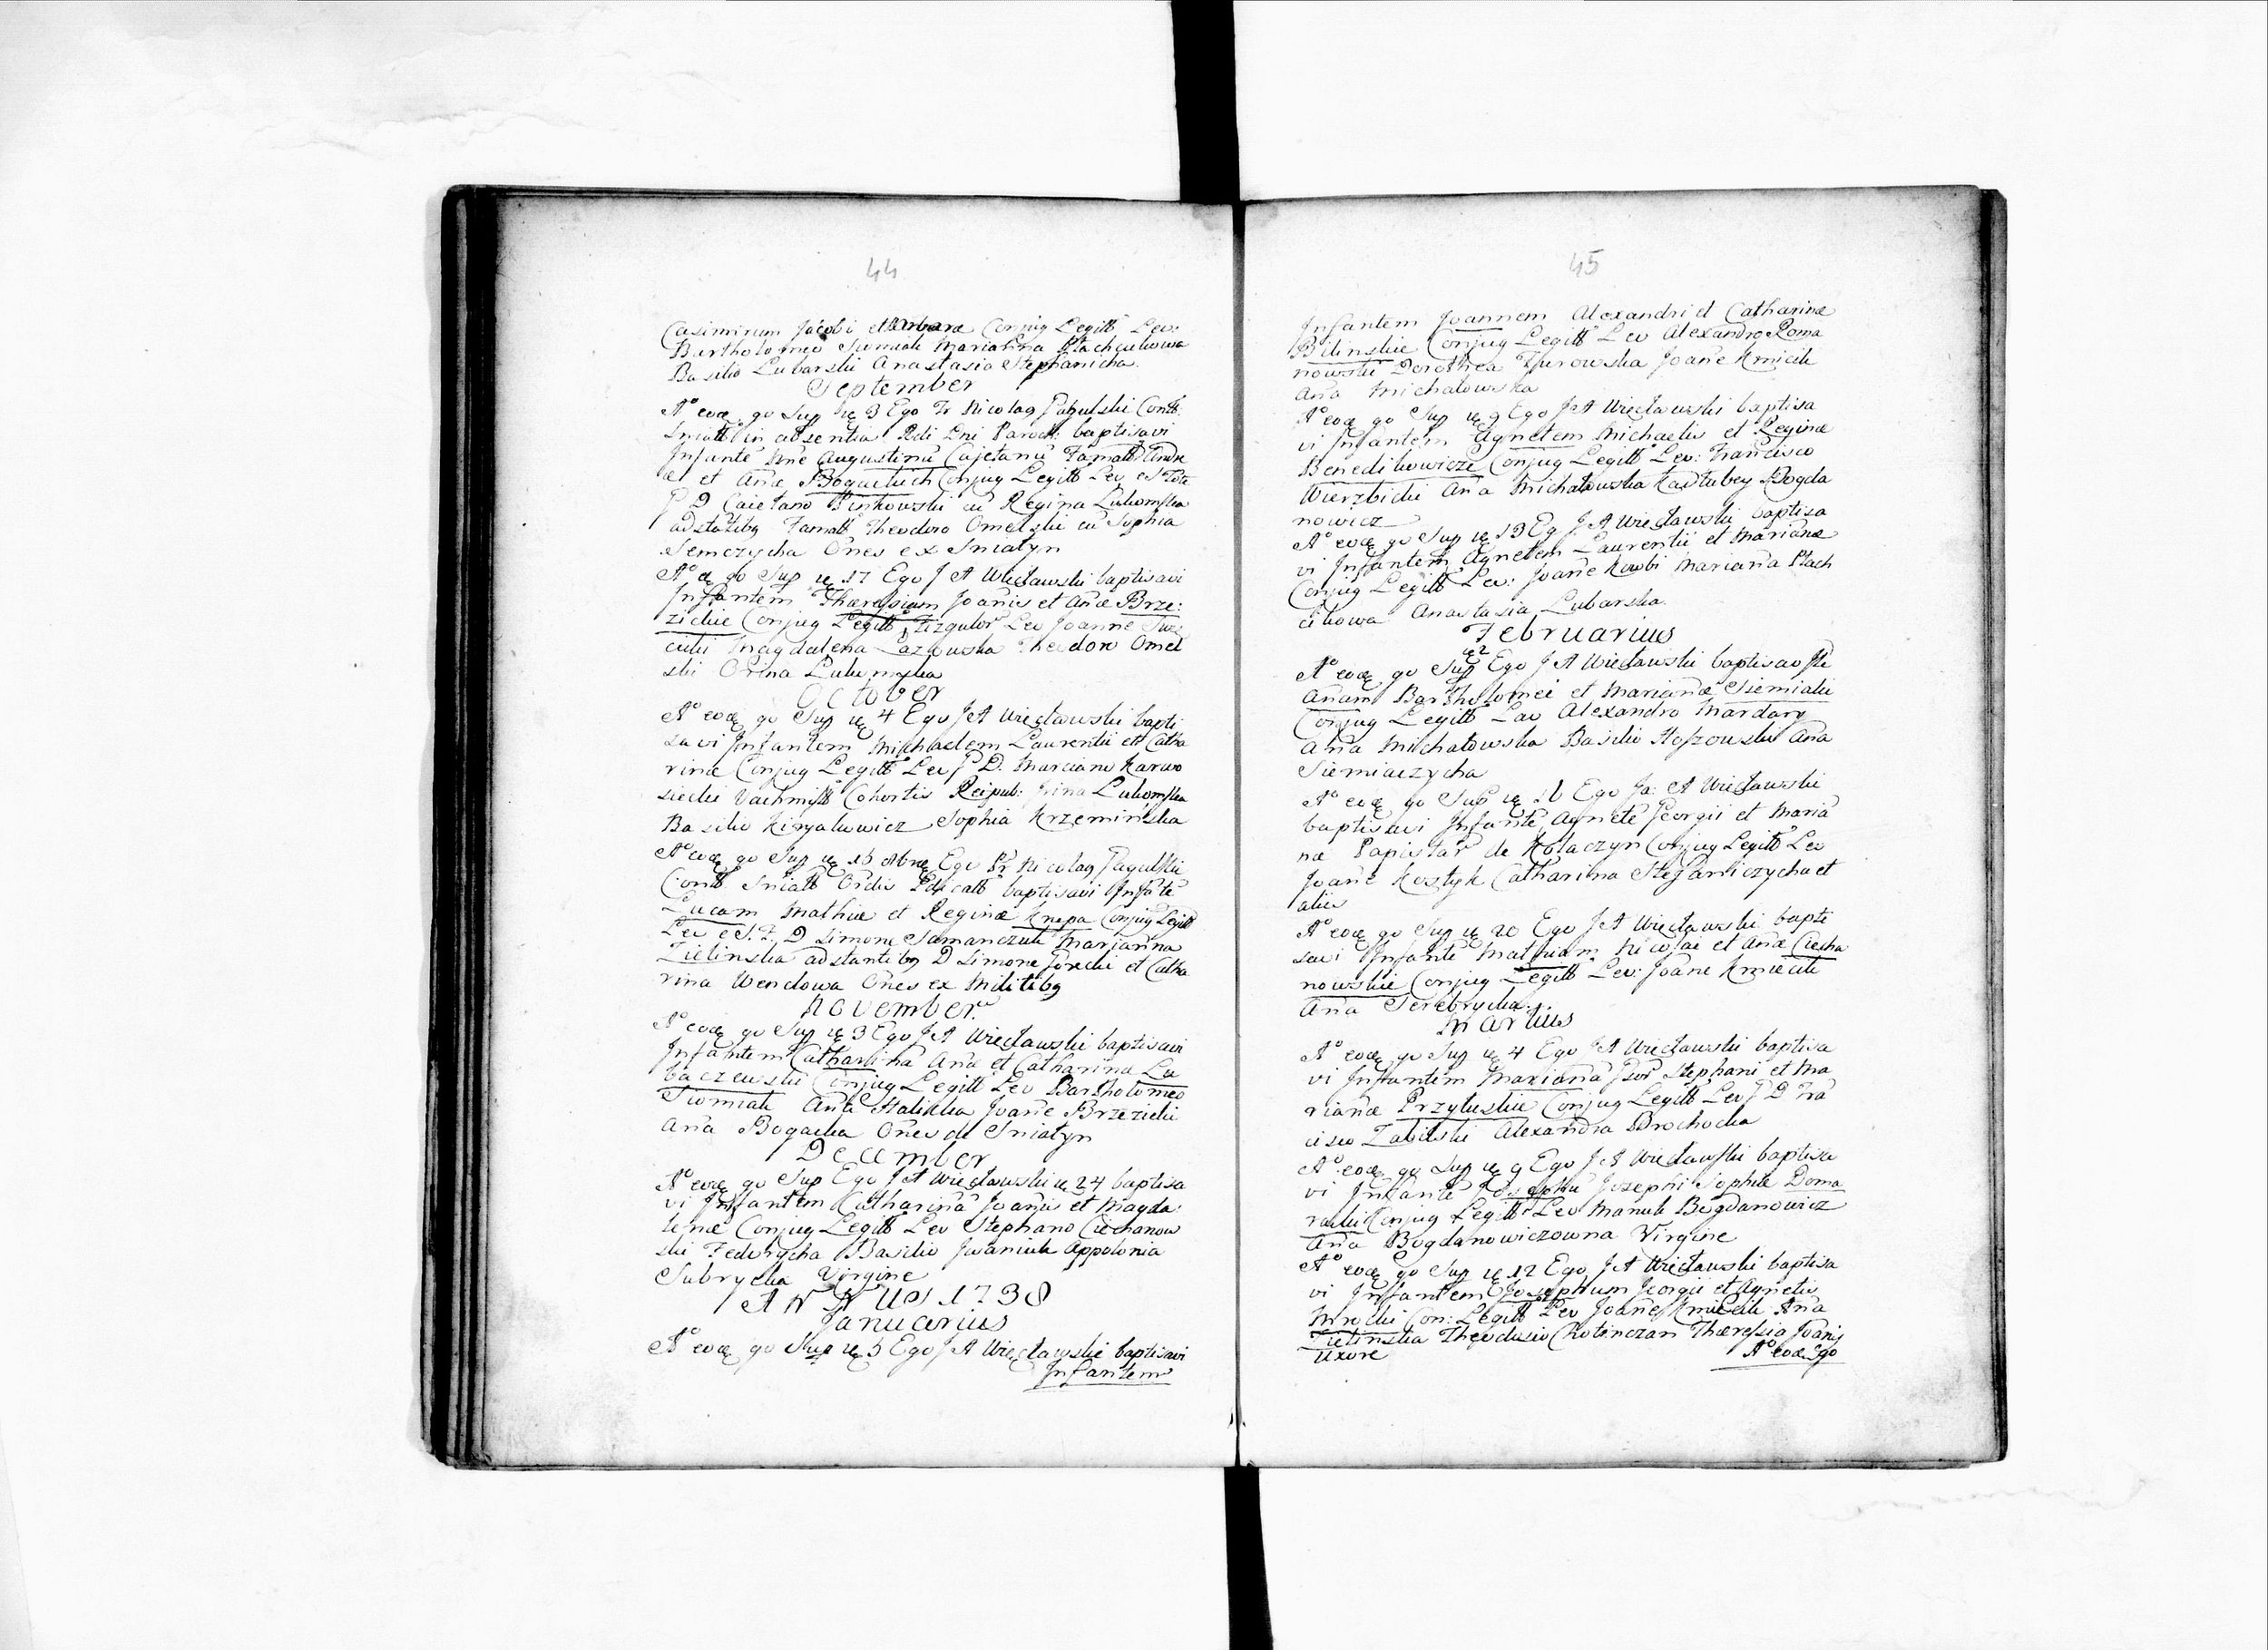 44
Casimirum Jacobi et Barbarae Conjug Legitt Lev:
Bartholomeo Siemiak Marianna Ptachcikowa
Basilio Lubarski Anastasia Stephanicha.
September
Aº eoq go Sup ie 3 Ego Fr Nicolaq Pagulski Contt.
Sniatt in absentia Rdi Dni Paroch: baptisavi
Infantē nne Augustinū Cajetanū Famatt Andre
ae et Anae Bogackich Conjug Legitt Lev e S Fote
G D Caietano Pinkowski cū Regina Lukomska
adstātibq Famatt Theodoro Omelski cū Sophia
Semczycha Ōnes ex Sniatyn
Aº eq go Sup ie 17 Ego J A Więcławski baptisavi
Infantem Thaeresiam Joānis et Anae Brze:
zickie Conjug Legitt Lev Joanne
Magdalena Łazowska Theodoro Omel
ski Orina Lukomska
October
Aº eoq go Sup ie 4 Ego J A Więcławski bapti
savi Infantem Michaelem Laurentii ett Catha
rinae Conjug Legitt Lev G D. Marciano Karwo
siecki Vachmistt Cohortis Reipub: Irina Lukomska
Basilio Kiryakowicz Sophia Krzeminska
Aº eoq go Sup ie 16 Ego Fr Nicolaq Pagulski
Contt Sniatt Ordis Pdicatt baptisavi Infātē
Lucam Mathiae et Reginae Knepa Conjug Legitt
Lev e S. F. D Simone Samanczuk Marianna
Zielinska adstantibq D Simone Gorecki et Catha
rina Wendowa Ōnes ex Militibq
November
Aº eoq go Sup ie 3 Ego J A Więcławski baptisavi
Infantem Catharina Ana et Catharina Lu
baczewski Conjug Legitt Lev Bartholomeo
Siemiak Ana Halicka Joane Brzezicki
Ana Bogacka Ōnes de Sniatyn
December
Aº eoq go Sup Ego J A Więcławski ie 24 baptisa
vi Infantem Catharinā Joānis et Magda
lenae Conjug Legitt Lev Stephano Ciechanow
ski Fedorycha Basilio Iwaniuk Appolonia
Subrycka Virgine
ANNUS 1738
Januarius
Aº eoq go Sup ie 5 Ego J A Więcławski baptisavi
Infantem
45
Infantem Joannem Alexandri et Catharinae
Bilinskie Conjug Legitt Lev Alexandro Roma
nowski Dorothea Turowska Joane Kmicik
Ana Michalowska
Aº eoq go Sup ie 9 Ego J A Więcławski baptisa
vi Infantem Agnetem Michaelis et Reginae
Benedikowicze Conjug Legitt Lev: Francisco
Wierzbicki Ana Michałowska Kadłubey Bogda
nowicz
Aº eoq go Sup ie 13 Eg J A Więcławski baptisa
vi Infantem Agnetem Laurentii et Marianae
Conjug Legitt Lev: Joane Kowbi Mariana Ptach
cikowa Anastasia Lubarska.
Februarius
ie 2
Aº eoq go Sup Ego J A Więcławski baptisavi
Anam Bartholomei et Marianae Siemiakii
Conjug Legitt Lev Alexandro Mardary
Ana Michałowska Basilio Hoszowski Ana
Siemiaczycha
Aº eoq go Sup ie 16 Ego Ja: A Więcławski
baptisavi Infantē Agnetē Georgii et Maria
nae Papistar de Kołaczyn Conjug Legitt Lev
Joane Kostyk Catharina Stefaniczycha et
aliis
Aº eoq go Sup ie 20 Ego J A Więcławski bapti
savi Infantē Mathiam Nicolai et Anae Ciecha
nowskie Conjug Legitt Lev: Joane Kmiecik
Ana Serebrycka.
Martius
Aº eoq go Sup ie 4 Ego J A Więcławski baptisa
vi Infantem Marianā Stephani et Ma
rianae Przyłuskie Conjug Legitt Lev G D Frā
cisco Zabilski Alexandra Brochocka
Aº eoq go Sup ie 9 Ego J A Więcławski baptisa
vi Infantē Josephū Josephi Sophiae Doma
racki Conjug Legitt Lev Manuk Bogdanowicz
Ana Bogdanowiczowna Virgine
Aº eoq go Sup ie 12 Ego J A Więcławski baptisa
vi Infantem Josephum Georgii et Agnetis
Con: Legitt Lev Joane Kmiecik Ana
Zielinska Theodosio Chotinczan Thaeresia Joānis
Uxore
Aº eoq go